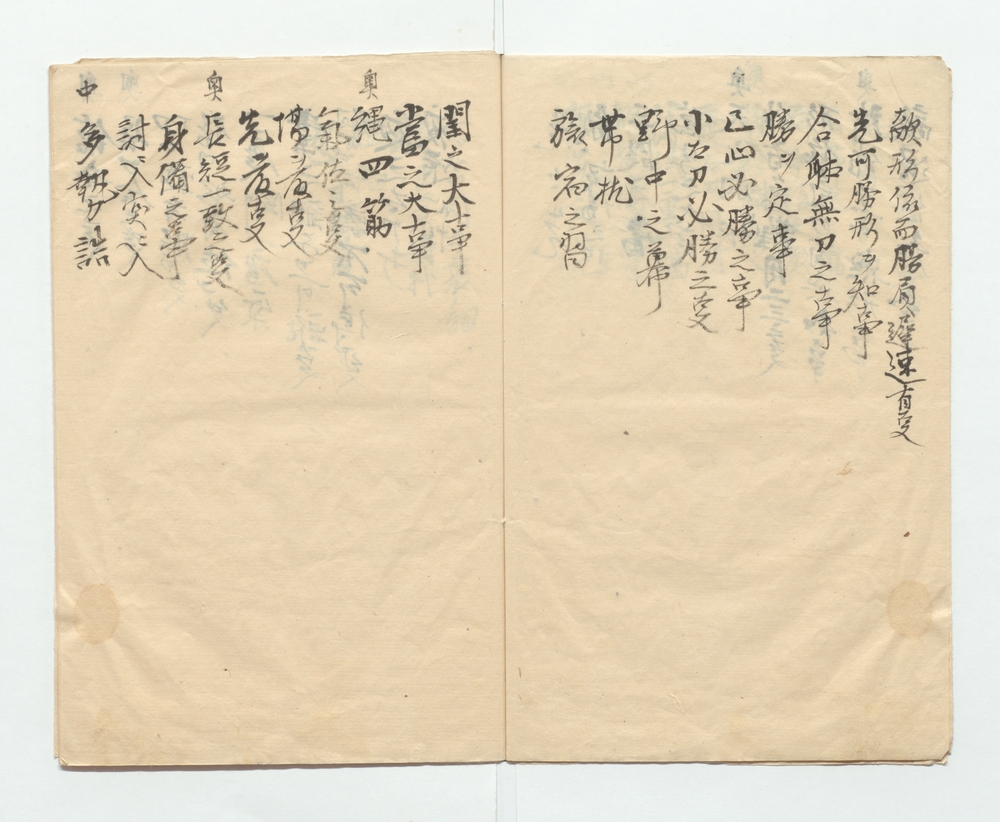 敵形係而勝肩遅速有事
先可勝形ヲ知事
合躰無刀之事
勝ヲ定事
己心必勝之事
小太刀必勝之事
野中之幕
帯枕
旅宿之習
閨之大事
當之大事
奥 縄四筋
氣位之事
陽ヲ産事
先ヲ産事
奥 長短一致之事
身備之事
討ニ入突ニ入
中 多勢詰